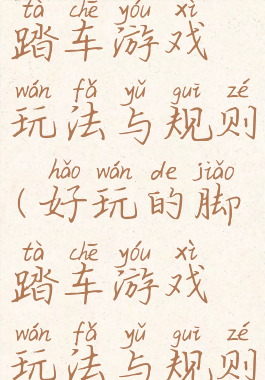 tà chē yóu xì
踏车游戏
wán fǎ yǔ guī zé
玩法与规则
hǎo wán de jiǎo
(好玩的脚
tà chē yóu xì
踏车游戏
wán fǎ yǔ guī zé
玩法与规则